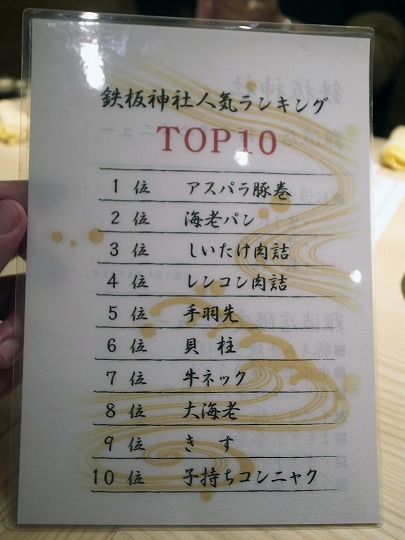 鉄板神社人気ランキング
TOP10
1位 アスパラ豚巻
2位 海老パン
3位 しいたけ肉詰
4位 レンコン肉詰
5位 手羽先
6位 貝柱
7位 牛ネック
8位 大海老
9位 きす
10位 子持ちコンニャク